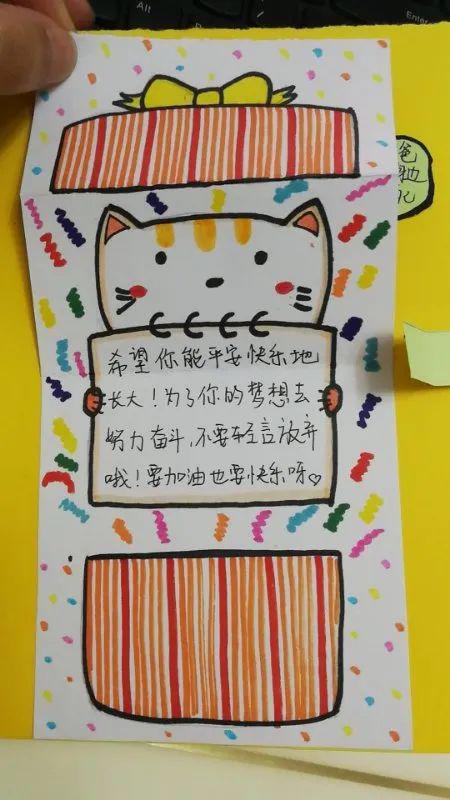 希望你能平安快乐地
长大！为了你的梦想去
努力奋斗,不要轻言放弃
哦！要加油也要快乐呀♡
Alt
Enter
爸